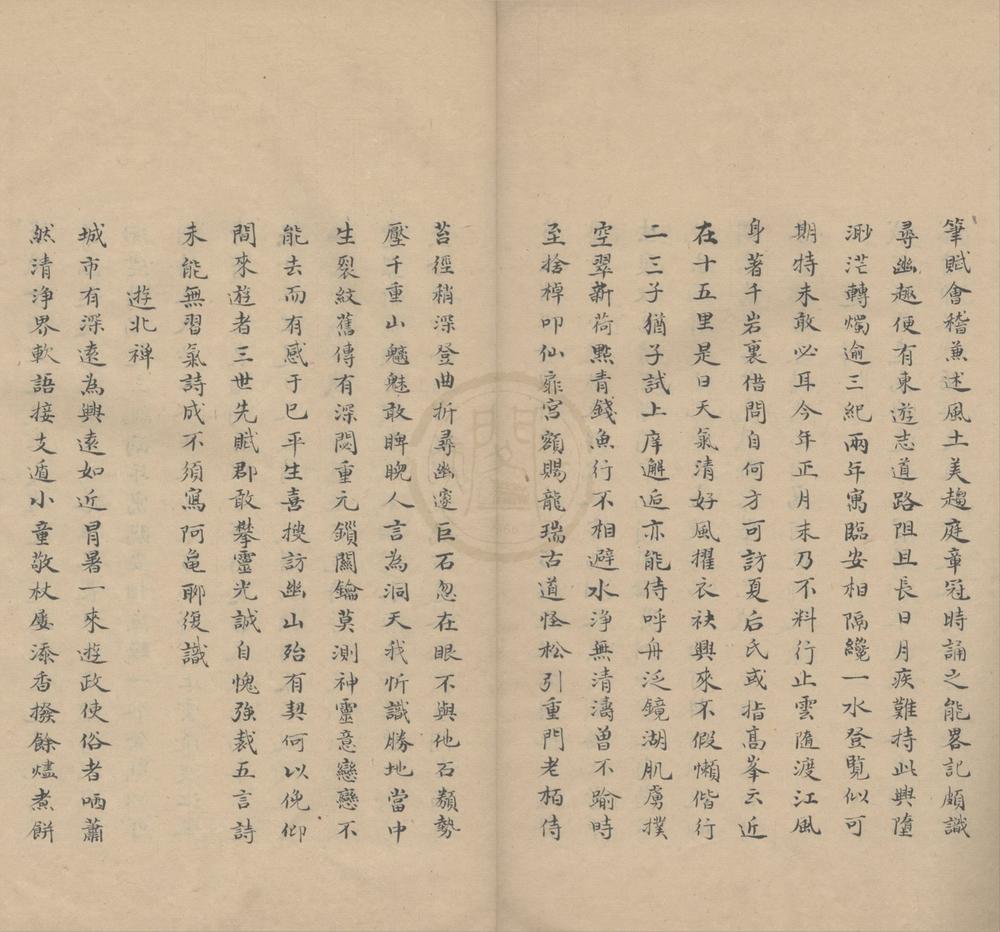 筆賦會稽兼述風土美趨庭章冠時誦之能畧記頗識
尋幽趣便有東遊志道路阻且長日月疾難持此興墮
渺茫轉燭逾三紀兩年寓臨安相隔纔一水登覧似可
期特未敢必耳今年正月末乃不料行止雲随渡江風
身著千岩裏借問自何方可訪夏后氏或指髙峯云近
在十五里是日天氣清好風擢衣袂興來不假懶偕行
二三子猶子試上庠邂逅亦能侍呼舟泛鏡湖肌膚撲
空翠新荷㸃青錢魚行不相避水浄無清濤曽不踰時
至捨棹叩仙扉宮額賜龍瑞古道怪松引重門老栢侍
苔徑稍深登曲折尋幽邃巨石忽在眼不與他石類勢
壓千重山魑魅敢睥睨人言為洞天我忻識勝地當中
生裂紋舊傳有深閟重元鎻闗鑰莫測神靈意戀戀不
能去而有感于巳平生喜搜訪幽山殆有契何以俛仰
間來遊者三世先賦郡敢攀靈光誠自愧強裁五言詩
未能無習氣詩成不須寫阿亀聊復識
遊北禅
城市有深遠為興遠如近冒暑一來遊政使俗者哂蕭
然清浄界軟語接支遁小童敬杖屨添香撥餘燼煮餅